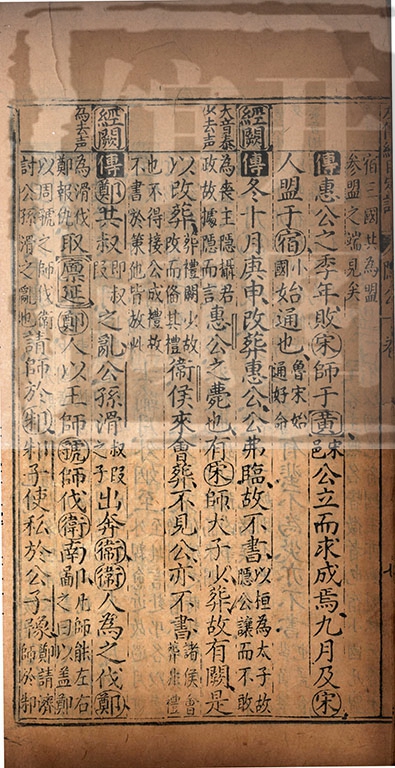 宿三國共為盟參盟之端見矣
傳惠公之季年敗宋師于黃宋邑公立而求成焉九月及宋
人盟于宿小國始通也魯宋始通好
經闕傳冬十月庚申改葬惠公公弗臨故不書以桓為太子故隱公讓而不敢
大音泰少去声為喪主隱攝君政故據隱而言惠公之薨也有宋師大子少葬故有闕是
以改葬葬禮闕少故改而備其禮衛侯來會葬不見公亦不書諸侯會葬非禮
也不得接公成禮故不書於策他皆放此
經闕傳鄭共叔即叔段之亂公孫滑叔段之子出奔衛衛人為之伐鄭
為去声為滑伐鄭報仇取廩延鄭人以王師虢師伐衛南鄙凡師能左右之曰以蓋鄭
以周虢之師伐衛討公孫滑之亂也請師於邾邾子使私於公子豫鄭請濟師於邾